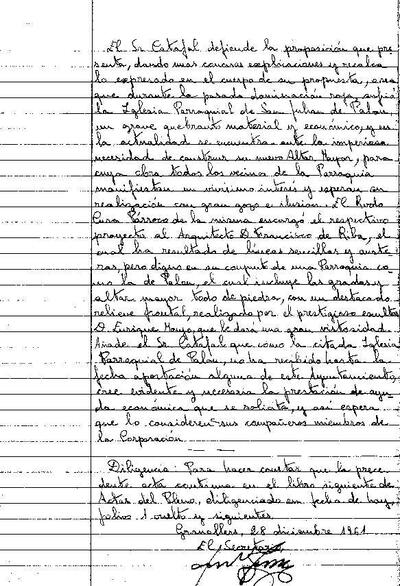 El Sr. Catafal defiende la proposición que pre
senta, dando unas concisas explicaciones y recalca
lo expresado en el cuerpo de su propuesta, o sea
que durante la pasada dominación roja, sufrió
la Iglesia Parroquial de San Julian de Palou,
un grave quebranto material y económico, y en
la actualidad se encuentra ante la imperiosa
necesidad de construir su nuevo Altar Mayor, para
cuya obra todos los vecinos de la Parroquia
manifiestan un vivísimo interés y esperan su
realización con gran gozo e ilusión. El Rvdo
Cura Párroco de la misma encargó el respectivo
proyecto al Arquitecto D. Francisco de Riba, el
cual ha resultado de líneas sencillas y auste
ras, pero digno en su conjunto de una Parroquia co
mo la de Palou, el cual incluye las gradas y
altar mayor todo de piedra, con un destacado
relieve frontal, realizado por el prestigioso escultor
D. Enrique Monjo, que le dará una gran vistosidad.
Añade el Sr. Catafal que como la citada Iglesia
Parroquial de Palou, no ha recibido hasta la
fecha aportación alguna de este Ayuntamiento,
cree evidente y necesaria la prestación de ayu
da económica que se solicita, y así espera
que lo consideren sus compañeros miembros de
la Corporación.
Diligencia: Para hacer constar que la prece
dente acta continua en el libro siguiente de
Actas del Pleno, diligenciado en fecha de hoy,
folios 1 vuelto y siguientes.
Granollers, 28 diciembre 1961
El Secretario,